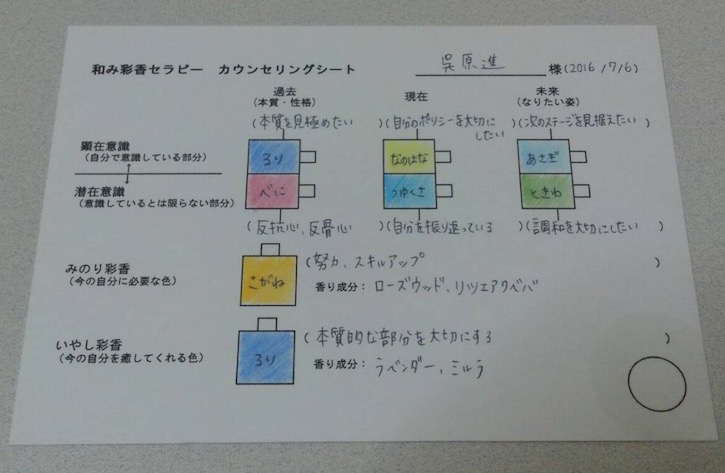 和み彩香セラピー カウンセリングシート 呉原進 様(2016/7/6)
過去 現在 未来
(本質・性格) (なりたい姿)
(本質を見極めたい)(自分のポリシーを大切にしたい)(次のステージを見据えたい)
顕在意識
(自分で意識している部分)
るり なのはな あさぎ
潜在意識
(意識しているとは限らない部分)
べに つゆくさ ときわ
(反抗心、反骨心)(自分を振り返っている)(調和を大切にしたい)
みのり彩香
(今の自分に必要な色)
こがね
(努力、スキルアップ)
香り成分: ローズウッド、リツエアクベバ
いやし彩香
(今の自分を癒してくれる色)
るり
(本質的な部分を大切にする)
香り成分: ラベンダー、ミルラ